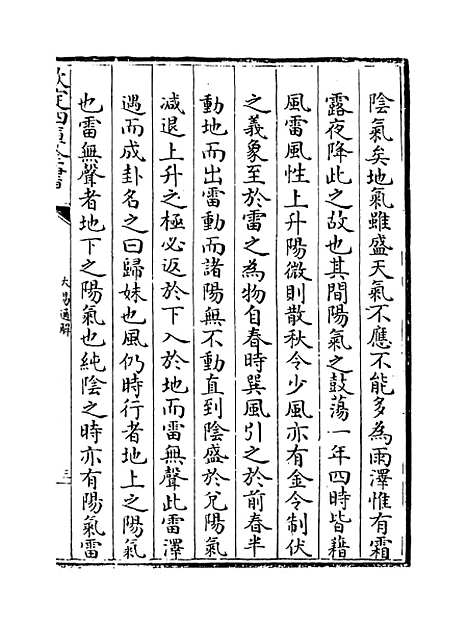 陰氣矣地氣雖盛天氣不應不能多為雨澤惟有霜
露夜降此之故也其間陽氣之鼓蕩一年四時皆藉
風雷風性上升陽微則散秋令少風亦有金令制伏
之義象至於雷之為物自春時巽風引之於前春半
動地而出雷動而諸陽無不動直到陰盛於兌陽氣
減退上升之極必返於下入於地而雷無聲此雷澤
遇而成卦名之曰歸妹也風仍時行者地上之陽氣
也雷無聲者地下之陽氣也純陰之時亦有陽氣雷
欽定四庫全書
大易通解
三